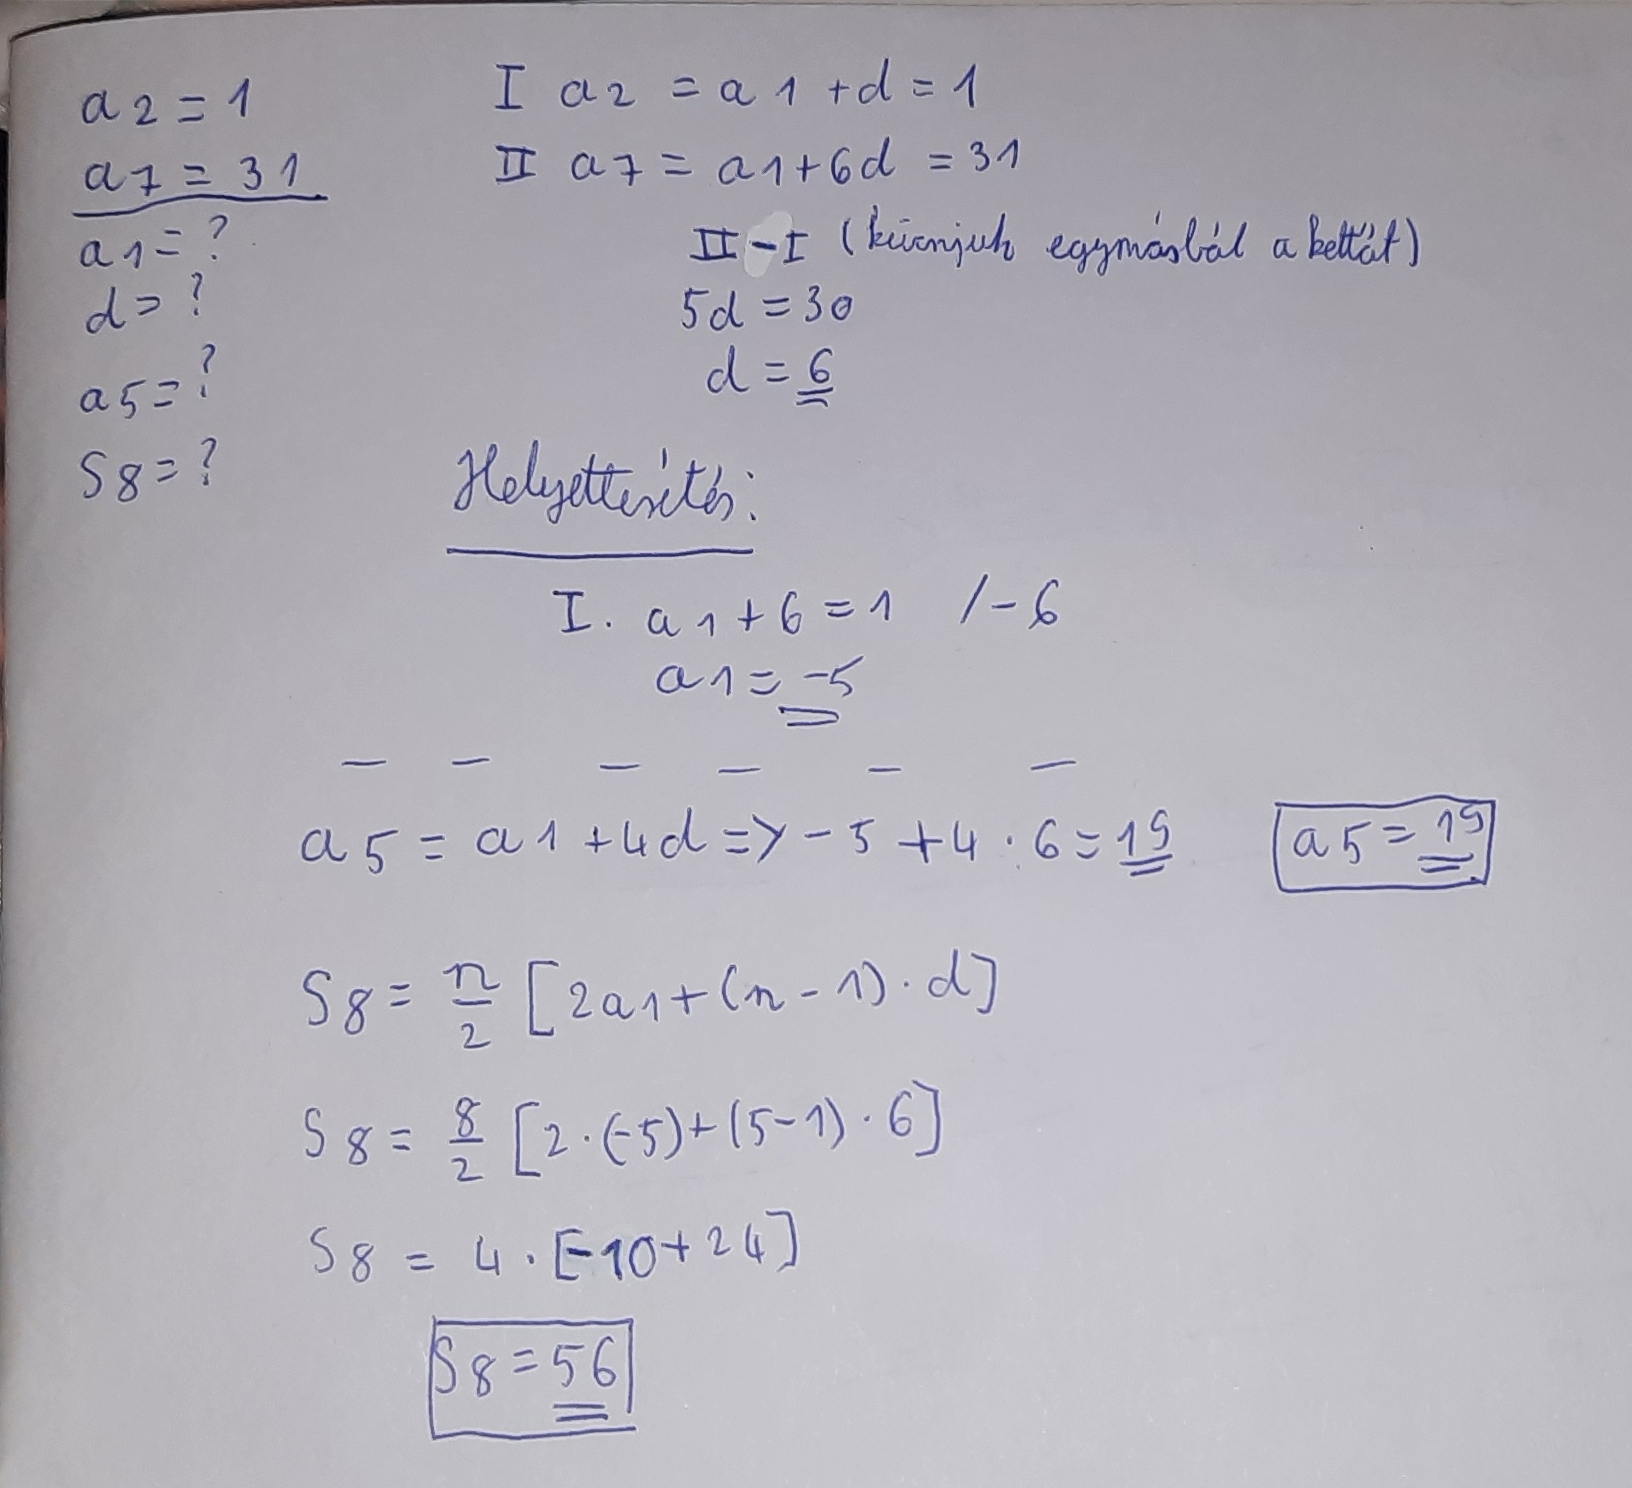 a2 = 1
a7 = 31
a1 = ?
d = ?
a5 = ?
S8 = ?
I a2 = a1 + d = 1
II a7 = a1 + 6d = 31
II - I (kivonjuk egymásból a kettőt)
5d = 30
d = 6
Helyettesítés:
I. a1 + 6 = 1 /-6
a1 = -5
— — — — — —
a5 = a1 + 4d => -5 + 4 · 6 = 19
a5 = 19
S8 = n/2 [2a1 + (n - 1) · d]
S8 = 8/2 [2 · (-5) + (5 - 1) · 6]
S8 = 4 · [-10 + 24]
S8 = 56